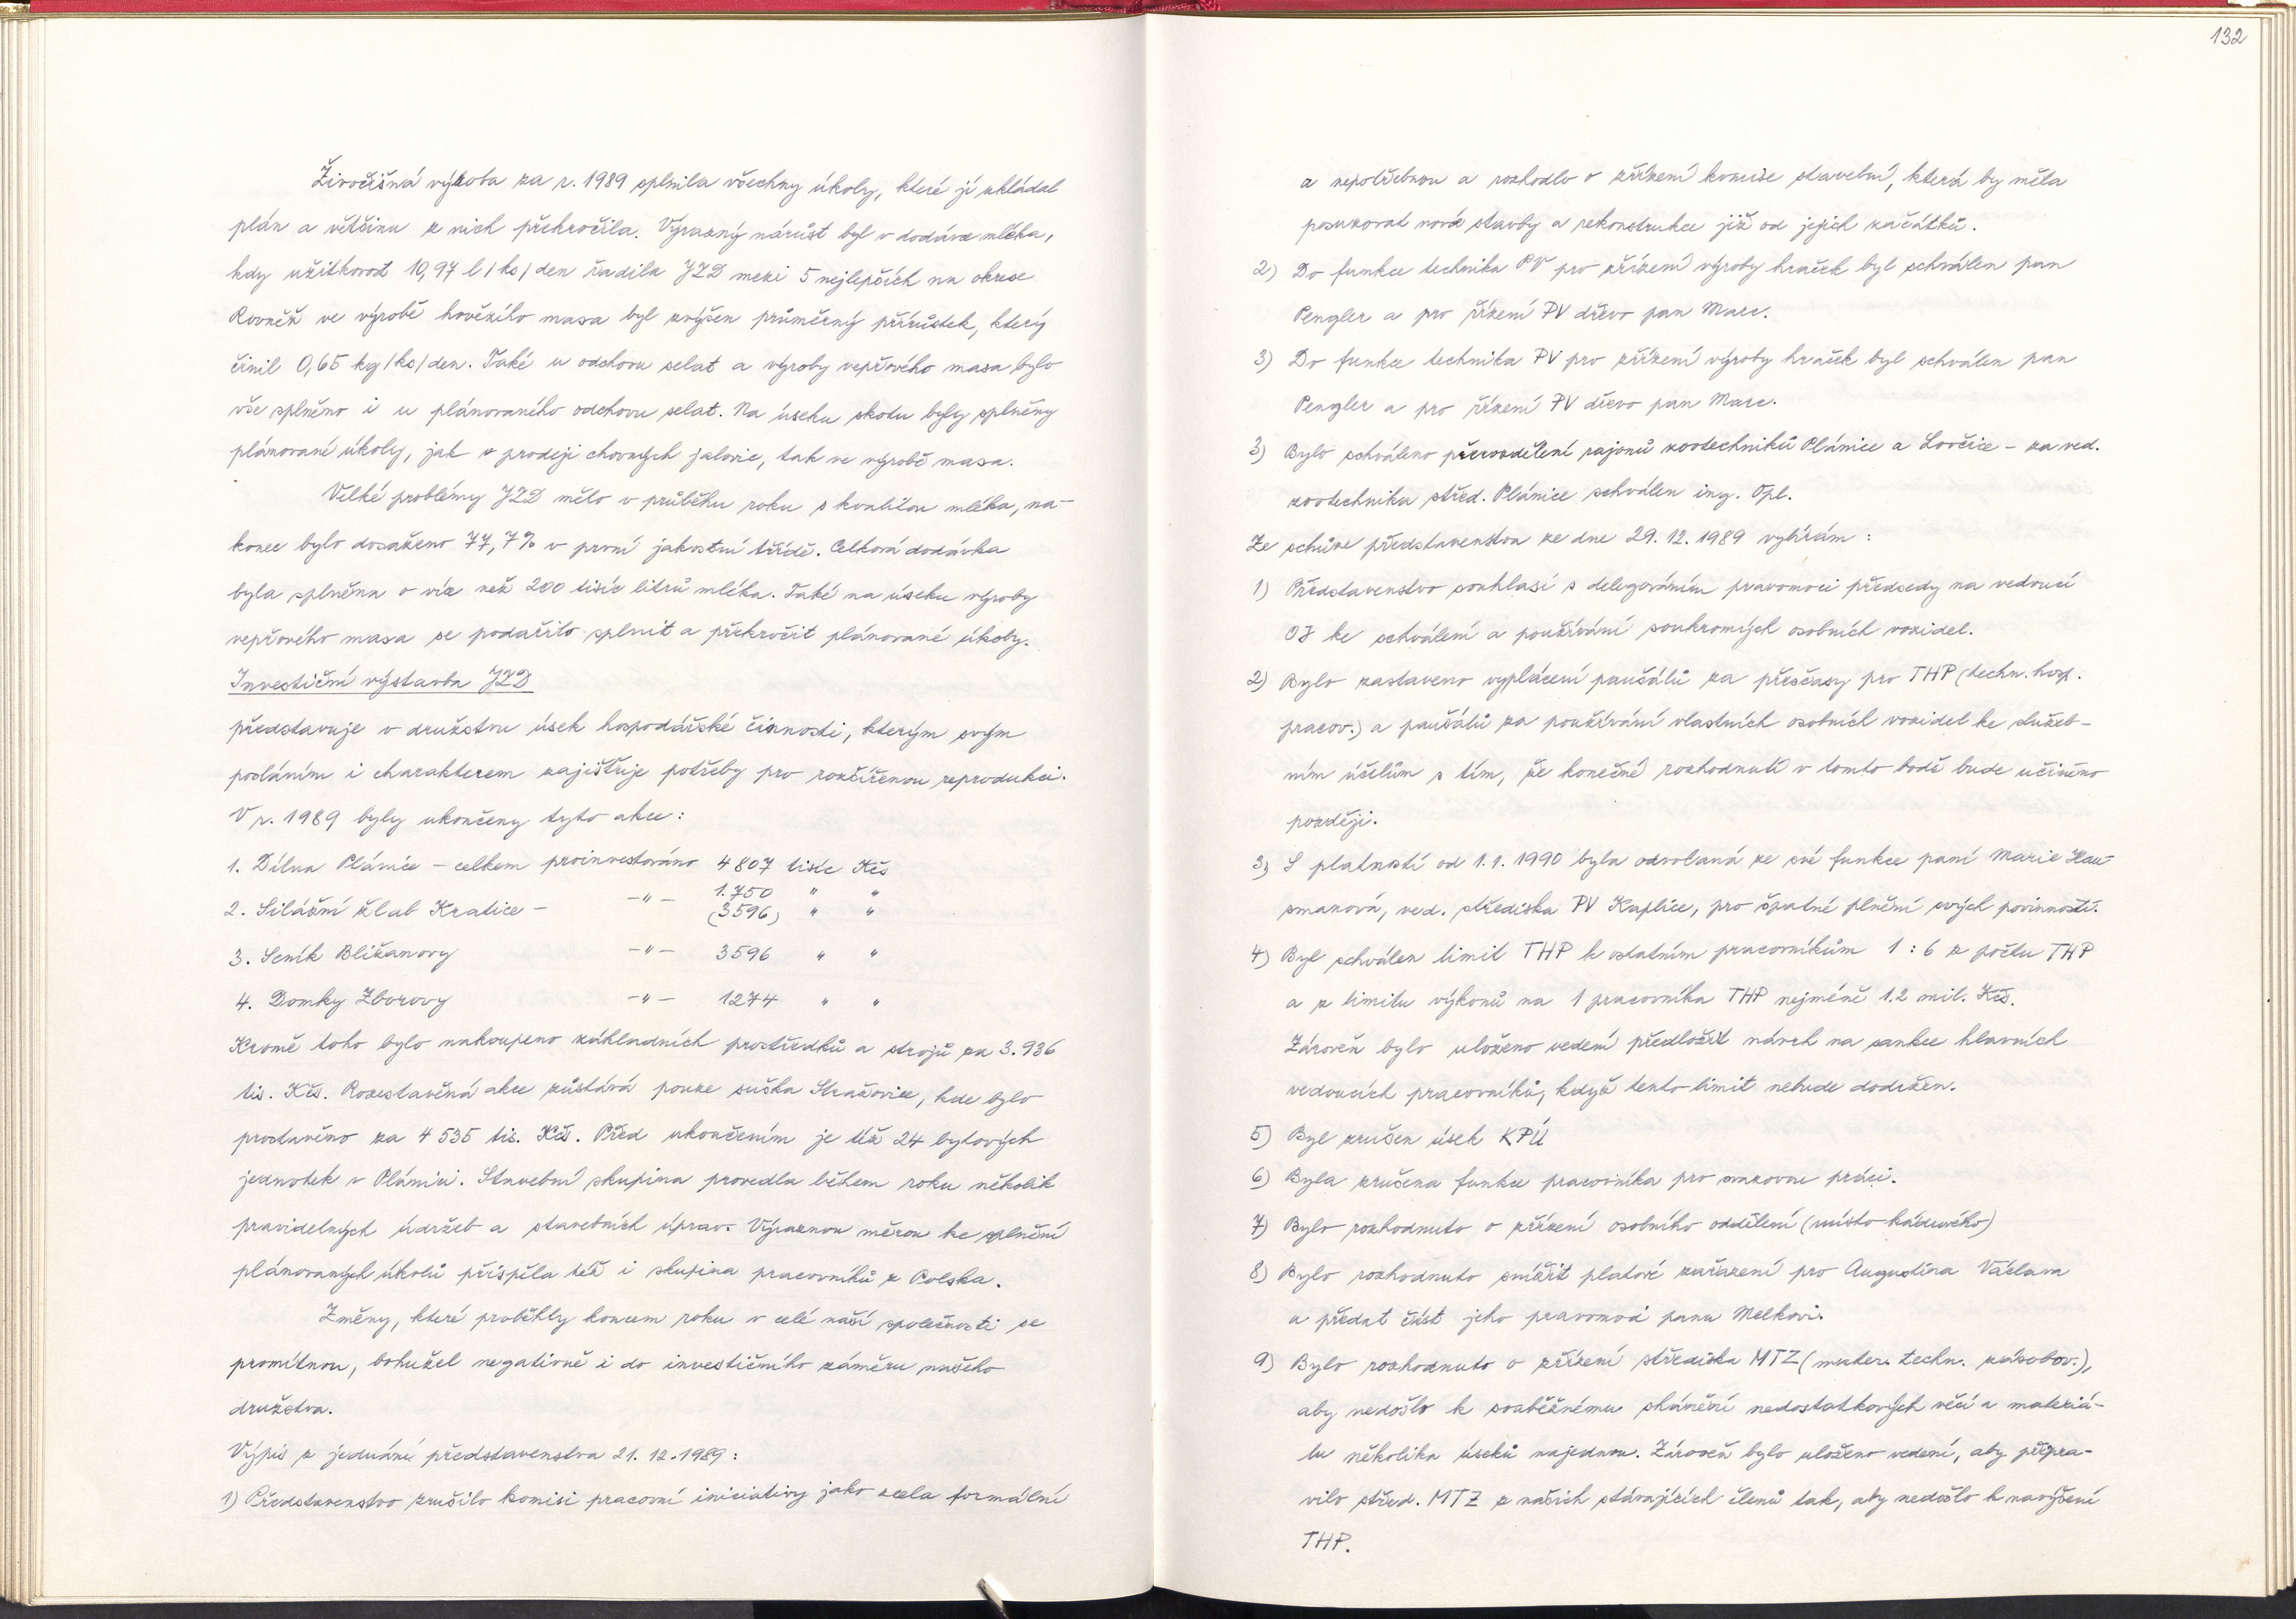 Živočišná výroba za r. 1989 splnila všechny úkoly, které jí ukládal
plán a většinu z nich překročila. Výrazný nárůst byl v dodávce mléka,
kdy užitkovost 10,97 l/ks/den řadila JZD mezi 5 nejlepších na okrese
Rovněž ve výrobě hovězího masa byl zvýšen průměrný přírůstek, který
činil 0,65 kg/ks/den. Také u odchovu selat a výroby vepřového masa bylo
vše splněno i u plánovaného odchovu selat. Na úseku skotu byly splněny
plánované úkoly, jak v prodeji chovných jalovic, tak ve výrobě masa.
Velké problémy JZD mělo v průběhu roku s kvalitou mléka, na-
konec bylo dosaženo 77,7% v první jakostní třídě. Celková dodávka
byla splněna o více než 200 tisíc litrů mléka. Také na úseku výroby
vepřového masa se podařilo splnit a překročit plánované úkoly.
Investiční výstavba JZD
představuje v družstvu úsek hospodářské činnosti, kterým svým
posláním i charakterem zajišťuje potřeby pro rozšířenou reprodukci.
V r. 1989 byly ukončeny tyto akce:
1. Dílna Plánice - celkem proinvestováno 4 807 tisíc Kčs
2. Silážní žlab Kratice - -"- 1.750 " "
(3596) " "
3. Seník Bližanovy -"- 3596 " "
4. Domky Zborovy -"- 1274 " "
Kromě toho bylo nakoupeno základních prostředků a strojů za 3.936
tis. Kčs. Rozestavěná akce zůstává pouze suška Stražovice, kde bylo
prostavěno za 4 535 tis. Kčs. Před ukončením je též 24 bytových
jednotek v Plánici. Stavební skupina provedla během roku několik
pravidelných údržeb a stavebních úprav. Výraznou měrou ke splnění
plánovaných úkolů přispěla též i skupina pracovníků z Polska.
Změny, které proběhly koncem roku v celé naší společnosti se
promítnou, bohužel negativně i do investičního záměru našeho
družstva.
Výpis z jednání představenstva 21. 12. 1989:
1) Představenstvo zrušilo komisi pracovní iniciativy jako zcela formální
132
a nepotřebnou a rozhodlo o zřízení komise stavební, která by měla
posuzovat nové stavby a rekonstrukce již od jejich začátků.
2) Do funkce technika PV pro zřízení výroby hraček byl schválen pan
Pengler a pro řízení PV dřevo pan Marc.
3) Do funkce technika PV pro zřízení výroby hraček byl schválen pan
Pengler a pro řízení PV dřevo pan Marc.
3) Bylo schváleno přerozdělení rajonů zootechniků Plánice a Lovčice - za ved.
zootechnika střed. Plánice schválen ing. Opl.
Ze schůze představenstva ze dne 29. 12. 1989 vybírám:
1) Představenstvo souhlasí s delegováním pravomoci předsedy na vedoucí
OJ ke schválení a používání soukromých osobních vozidel.
2) Bylo zastaveno vyplácení paušálů za přesčasy pro THP (techn. hosp.
pracov.) a paušálů za používání vlastních osobních vozidel ke služeb-
ním účelům s tím, že konečné rozhodnutí v tomto bodě bude učiněno
později.
3) S platností od 1. 1. 1990 byla odvolaná ze své funkce paní Marie Hau-
smanová, ved. střediska PV Kaplice, pro špatné plnění svých povinností.
4) Byl schválen limit THP k ostatním pracovníkům 1 : 6 z počtu THP
a z limitu výkonů na 1 pracovníka THP nejméně 1.2 mil. Kčs.
Zároveň bylo uloženo vedení předložit návrh na sankce hlavních
vedoucích pracovníků, když tento limit nebude dodržen.
5) Byl zrušen úsek KPÚ
6) Byla zrušena funkce pracovníka pro svazovou práci.
7) Bylo rozhodnuto o zřízení osobního oddělení (místo kádrového)
8) Bylo rozhodnuto snížit platové zařazení pro Augustina Václava
a předat část jeho pravomocí panu Melkovi.
9) Bylo rozhodnuto o zřízení střediska MTZ (mater. techn. zásobov.),
aby nedošlo k souběžnému shánění nedostatkových věcí a materiá-
lu několika úseků najednou. Zároveň bylo uloženo vedení, aby připra-
vilo střed. MTZ z našich stávajících členů tak, aby nedošlo k navýšení
THP.